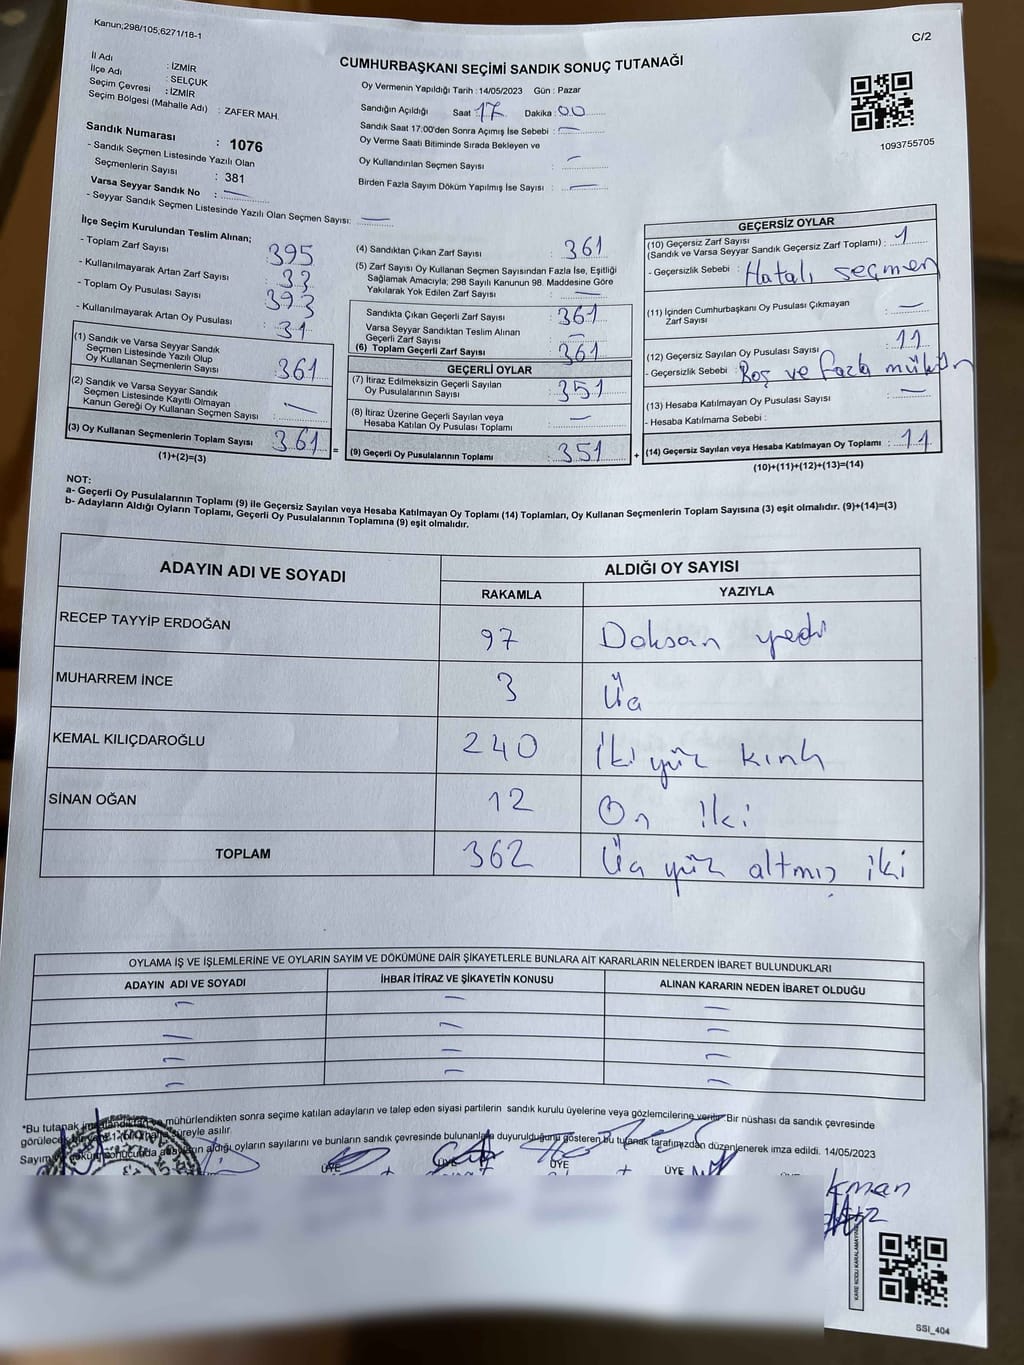 Kanun;298/105;6271/18-1
C/2
CUMHURBAŞKANI SEÇİMİ SANDIK SONUÇ TUTANAĞI
İl Adı : İZMİR
İlçe Adı : SELÇUK
Seçim Çevresi : İZMİR
Seçim Bölgesi (Mahalle Adı) : ZAFER MAH.
Sandık Numarası : 1076
- Sandık Seçmen Listesinde Yazılı Olan
Seçmenlerin Sayısı : 381
Varsa Seyyar Sandık No : —
- Seyyar Sandık Seçmen Listesinde Yazılı Olan Seçmen Sayısı: —
Oy Vermenin Yapıldığı Tarih : 14/05/2023 Gün : Pazar
Sandığın Açıldığı Saat : 17 Dakika : 00
Sandık Saat 17:00'den Sonra Açımış İse Sebebi : —
Oy Verme Saati Bitiminde Sırada Bekleyen ve
Oy Kullandırılan Seçmen Sayısı : —
Birden Fazla Sayım Döküm Yapılmış İse Sayısı : —
1093755705
İlçe Seçim Kurulundan Teslim Alınan;
- Toplam Zarf Sayısı : 395
- Kullanılmayarak Artan Zarf Sayısı : 33
- Toplam Oy Pusulası Sayısı : 393
- Kullanılmayarak Artan Oy Pusulası : 31
(1) Sandık ve Varsa Seyyar Sandık
Seçmen Listesinde Yazılı Olup
Oy Kullanan Seçmenlerin Sayısı : 361
(2) Sandık ve Varsa Seyyar Sandık
Seçmen Listesinde Kayıtlı Olmayan
Kanun Gereği Oy Kullanan Seçmen Sayısı : —
(3) Oy Kullanan Seçmenlerin Toplam Sayısı : 361
(1)+(2)=(3)
=
(4) Sandıktan Çıkan Zarf Sayısı : 361
(5) Zarf Sayısı Oy Kullanan Seçmen Sayısından Fazla İse, Eşitliği
Sağlamak Amacıyla; 298 Sayılı Kanunun 98. Maddesine Göre
Yakılarak Yok Edilen Zarf Sayısı : —
Sandıkta Çıkan Geçerli Zarf Sayısı : 361
Varsa Seyyar Sandıktan Teslim Alınan
Geçerli Zarf Sayısı : —
(6) Toplam Geçerli Zarf Sayısı : 361
GEÇERLİ OYLAR
(7) İtiraz Edilmeksizin Geçerli Sayılan
Oy Pusulasının Sayısı : 351
(8) İtiraz Üzerine Geçerli Sayılan veya
Hesaba Katılan Oy Pusulası Toplamı : —
(9) Geçerli Oy Pusulalarının Toplamı : 351
+
GEÇERSİZ OYLAR
(10) Geçersiz Zarf Sayısı
(Sandık ve Varsa Seyyar Sandık Geçersiz Zarf Toplamı) : 1
- Geçersizlik Sebebi : Hatalı seçmen
(11) İçinden Cumhurbaşkanı Oy Pusulası Çıkmayan
Zarf Sayısı : —
(12) Geçersiz Sayılan Oy Pusulası Sayısı : 11
- Geçersizlik Sebebi : Boş ve fazla mühür
(13) Hesaba Katılmayan Oy Pusulası Sayısı : —
- Hesaba Katılmama Sebebi :
(14) Geçersiz Sayılan veya Hesaba Katılmayan Oy Toplamı : 11
(10)+(11)+(12)+(13)=(14)
NOT:
a- Geçerli Oy Pusulalarının Toplamı (9) ile Geçersiz Sayılan veya Hesaba Katılmayan Oy Toplamı (14) Toplamları, Oy Kullanan Seçmenlerin Toplam Sayısına (3) eşit olmalıdır. (9)+(14)=(3)
b- Adayların Aldığı Oyların Toplamı, Geçerli Oy Pusulalarının Toplamına (9) eşit olmalıdır.
ADAYIN ADI VE SOYADI ALDIĞI OY SAYISI
RAKAMLA YAZIYLA
RECEP TAYYİP ERDOĞAN 97 Doksan yedi
MUHARREM İNCE 3 Üç
KEMAL KILIÇDAROĞLU 240 İki yüz kırk
SİNAN OĞAN 12 On iki
TOPLAM 362 Üç yüz altmış iki
OYLAMA İŞ VE İŞLEMLERİNE VE OYLARIN SAYIM VE DÖKÜMÜNE DAİR ŞİKAYETLERLE BUNLARA AİT KARARLARIN NELERDEN İBARET BULUNDUKLARI
ADAYIN ADI VE SOYADI İHBAR İTİRAZ VE ŞİKAYETİN KONUSU ALINAN KARARIN NEDEN İBARET OLDUĞU
— — —
— — —
— — —
— — —
*Bu tutanak mühürlendikten sonra seçime katılan adayların ve talep eden siyasi partilerin sandık kurulu üyelerine veya gözlemcilerine verilir. Bir nüshası da sandık çevresinde
süreyle asılır.
aldığı oyların sayılarını ve bunların sandık çevresinde bulunanlara duyurulduğunu gösteren bu tutanak tarafımızdan düzenlenerek imza edildi. 14/05/2023
ÜYE ÜYE ÜYE ÜYE
KARE KODU KARALAMAYINIZ
SSİ_404